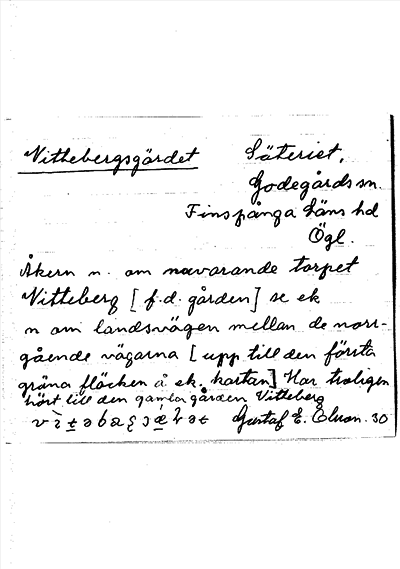 Vittebergsgärdet Säteriet,
Godegårds sn.
Finspånga läns hd
Ögl.
Åkern n. om nuvarande torpet
Vitteberg [f.d. gården] se ek
n om landsvägen mellan de norr-
gående vägarna [upp till den första
gröna fläcken å ek. kartan] Har troligen
hört till den gamla gården Vitteberg
Gustaf E. Elvson. 30